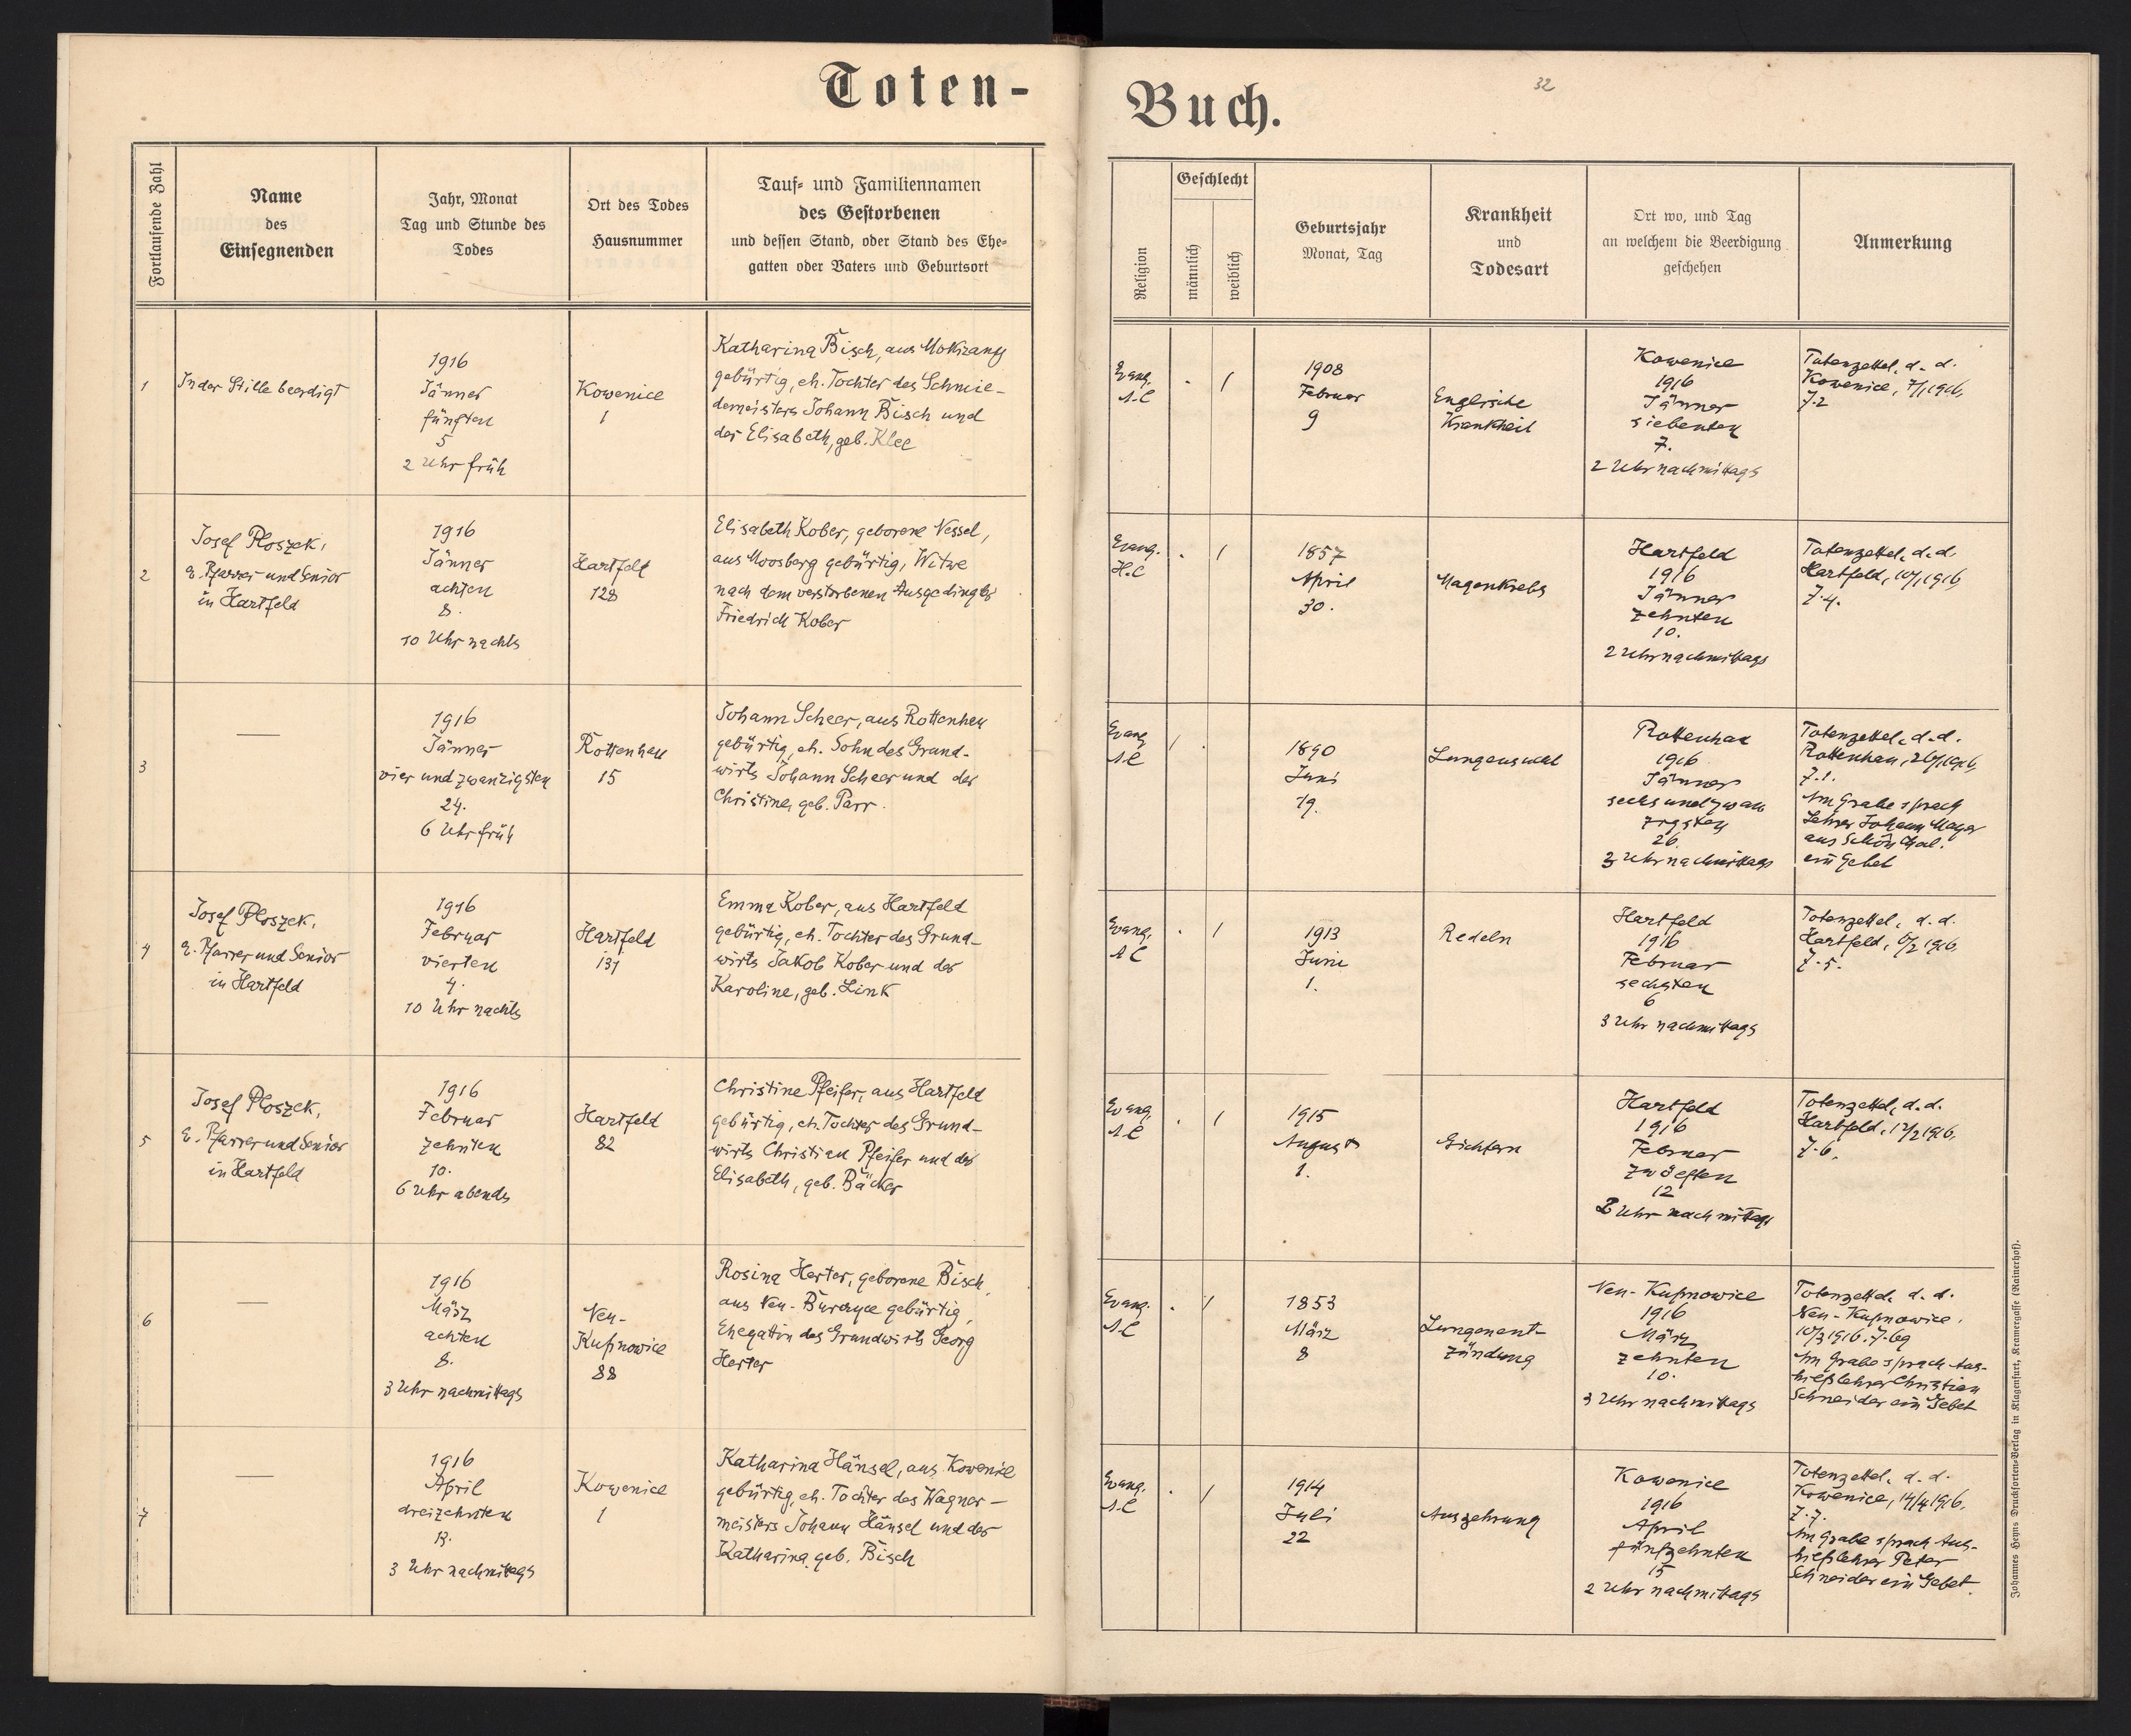 Toten-
Buch.
32
Fortlaufende Zahl
Name
des
Einsegnenden
Jahr, Monat
Tag und Stunde des
Todes
Ort des Todes
Hausnummer
Tauf- und Familiennamen
des Gestorbenen
und dessen Stand, oder Stand des Ehe-
gatten oder Vaters und Geburtsort
Religion
Geschlecht
männlich
weiblich
Geburtsjahr
Monat, Tag
Krankheit
und
Todesart
Ort wo, und Tag
an welchem die Beerdigung
geschehen
Anmerkung
1
In der Stille beerdigt
1916
Jänner
fünften
5
2 Uhr früh
Kowenice
1
Katharina Bisch, aus Mokrzany
gebürtig, eh. Tochter des Schmie-
demeisters Johann Bisch und
der Elisabeth, geb. Klee
Evang.
A.C
. /
1908
Februar
9
Englische
Krankheit
Kowenice
1916
Jänner
siebenten
7.
2 Uhr nachmittags
Totenzettel, d. d.
Kowenice, 7/1 1916,
Z. 2
2
Josef Ploszek,
e. Pfarrer und Senior
in Hartfeld
1916
Jänner
achten
8.
10 Uhr nachts
Hartfeld
128
Elisabeth Kober, geborene Nessel,
aus Moosberg gebürtig, Witwe
nach dem verstorbenen Ausgedingler
Friedrich Kober
Evang.
H.C
. /
1857
April
30.
Magenkrebs
Hartfeld
1916
Jänner
zehnten
10.
2 Uhr nachmittags
Totenzettel, d. d.
Hartfeld, 10/1 1916,
Z. 4.
3
—
1916
Jänner
vier und zwanzigsten
24.
6 Uhr früh
Rottenhan
15
Johann Scheer, aus Rottenhan
gebürtig, eh. Sohn des Grund-
wirts Johann Scheer und der
Christine, geb. Parr.
Evang
A.C
/ .
1890
Juni
19.
Rottenhan
1916
Jänner
sechs und zwan
zigsten
26.
3 Uhr nachmittags
Totenzettel, d. d.
Rottenhan, 26/1 1916,
Z. 1.
Am Grabe sprach
Lehrer Johann Mayer
aus Schönthal.
ein Gebet
4
Josef Ploszek,
e. Pfarrer und Senior
in Hartfeld
1916
Februar
vierten
4.
10 Uhr nachts
Hartfeld
131
Emma Kober, aus Hartfeld
gebürtig, eh. Tochter des Grund-
wirts Jakob Kober und der
Karoline, geb. Link
Evang.
A C
. /
1913
Juni
1.
Redeln
Hartfeld
1916
Februar
sechsten
6
3 Uhr nachmittags
Totenzettel, d. d.
Hartfeld, 6/2 1916,
Z. 5.
5
Josef Ploszek,
e. Pfarrer und Senior
in Hartfeld
1916
Februar
zehnten
10.
6 Uhr abends
Hartfeld
82
Christine Pfeifer, aus Hartfeld
gebürtig, eh. Tochter des Grund-
wirts Christian Pfeifer und der
Elisabeth, geb. Bäcker
Evang.
A.C
. /
1915
August
1.
Gichtern
Hartfeld
1916
Februar
zwölften
12
2 Uhr nachmittags
Totenzettel, d. d.
Hartfeld, 12/2 1916,
Z. 6.
6
—
1916
März
achten
8.
3 Uhr nachmittags
Neu-
Kupnowice
88
Rosina Herter, geborene Bisch,
aus Neu-Burczyce gebürtig,
Ehegattin des Grundwirts Georg
Herter
Evang.
A.C
. /
1853
März
8
Lungenent-
zündung
Neu-Kupnowice
1916
März
zehnten
10.
3 Uhr nachmittags
Totenzettel, d. d.
Neu-Kupnowice.
10/3 1916. Z. 69
Am Grabe sprach Aus-
hilfslehrer Christian
Schneider ein Gebet
7
—
1916
April
dreizehnten
13.
3 Uhr nachmittags
Kowenice
1
Katharina Hänsel, aus Kowenice
gebürtig, eh. Tochter des Wagner-
meisters Johann Hänsel und der
Katharina, geb. Bisch
Evang.
A.C
. /
1914
Juli
22
Auszehrung
Kowenice
1916
April
fünfzehnten
15
2 Uhr nachmittags
Totenzettel, d. d.
Kowenice, 14/4 1916.
Z. 7.
Am Grabe sprach Aus-
hilfslehrer Peter
Schneider ein Gebet.
Johannes Heyns Drucksorten-Verlag in Klagenfurt, Kramergasse (Rainerhof).